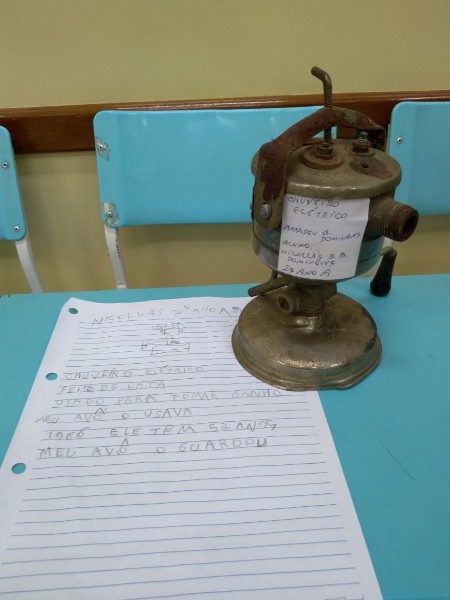 NICOLLAS 2º ANO A
CHUVEIRO ELÉTRICO
FEITO DE LATA
USADO PARA TOMAR BANHO
MEU AVÔ O USAVA
1966 ELE TEM 52 ANOS
MEU AVÔ O GUARDOU
CHUVEIRO
ELÉTRICO
AMADEU
DOMINGAS
ALUNO:
NICOLLAS B. B.
DOMINGUES
2º ANO A